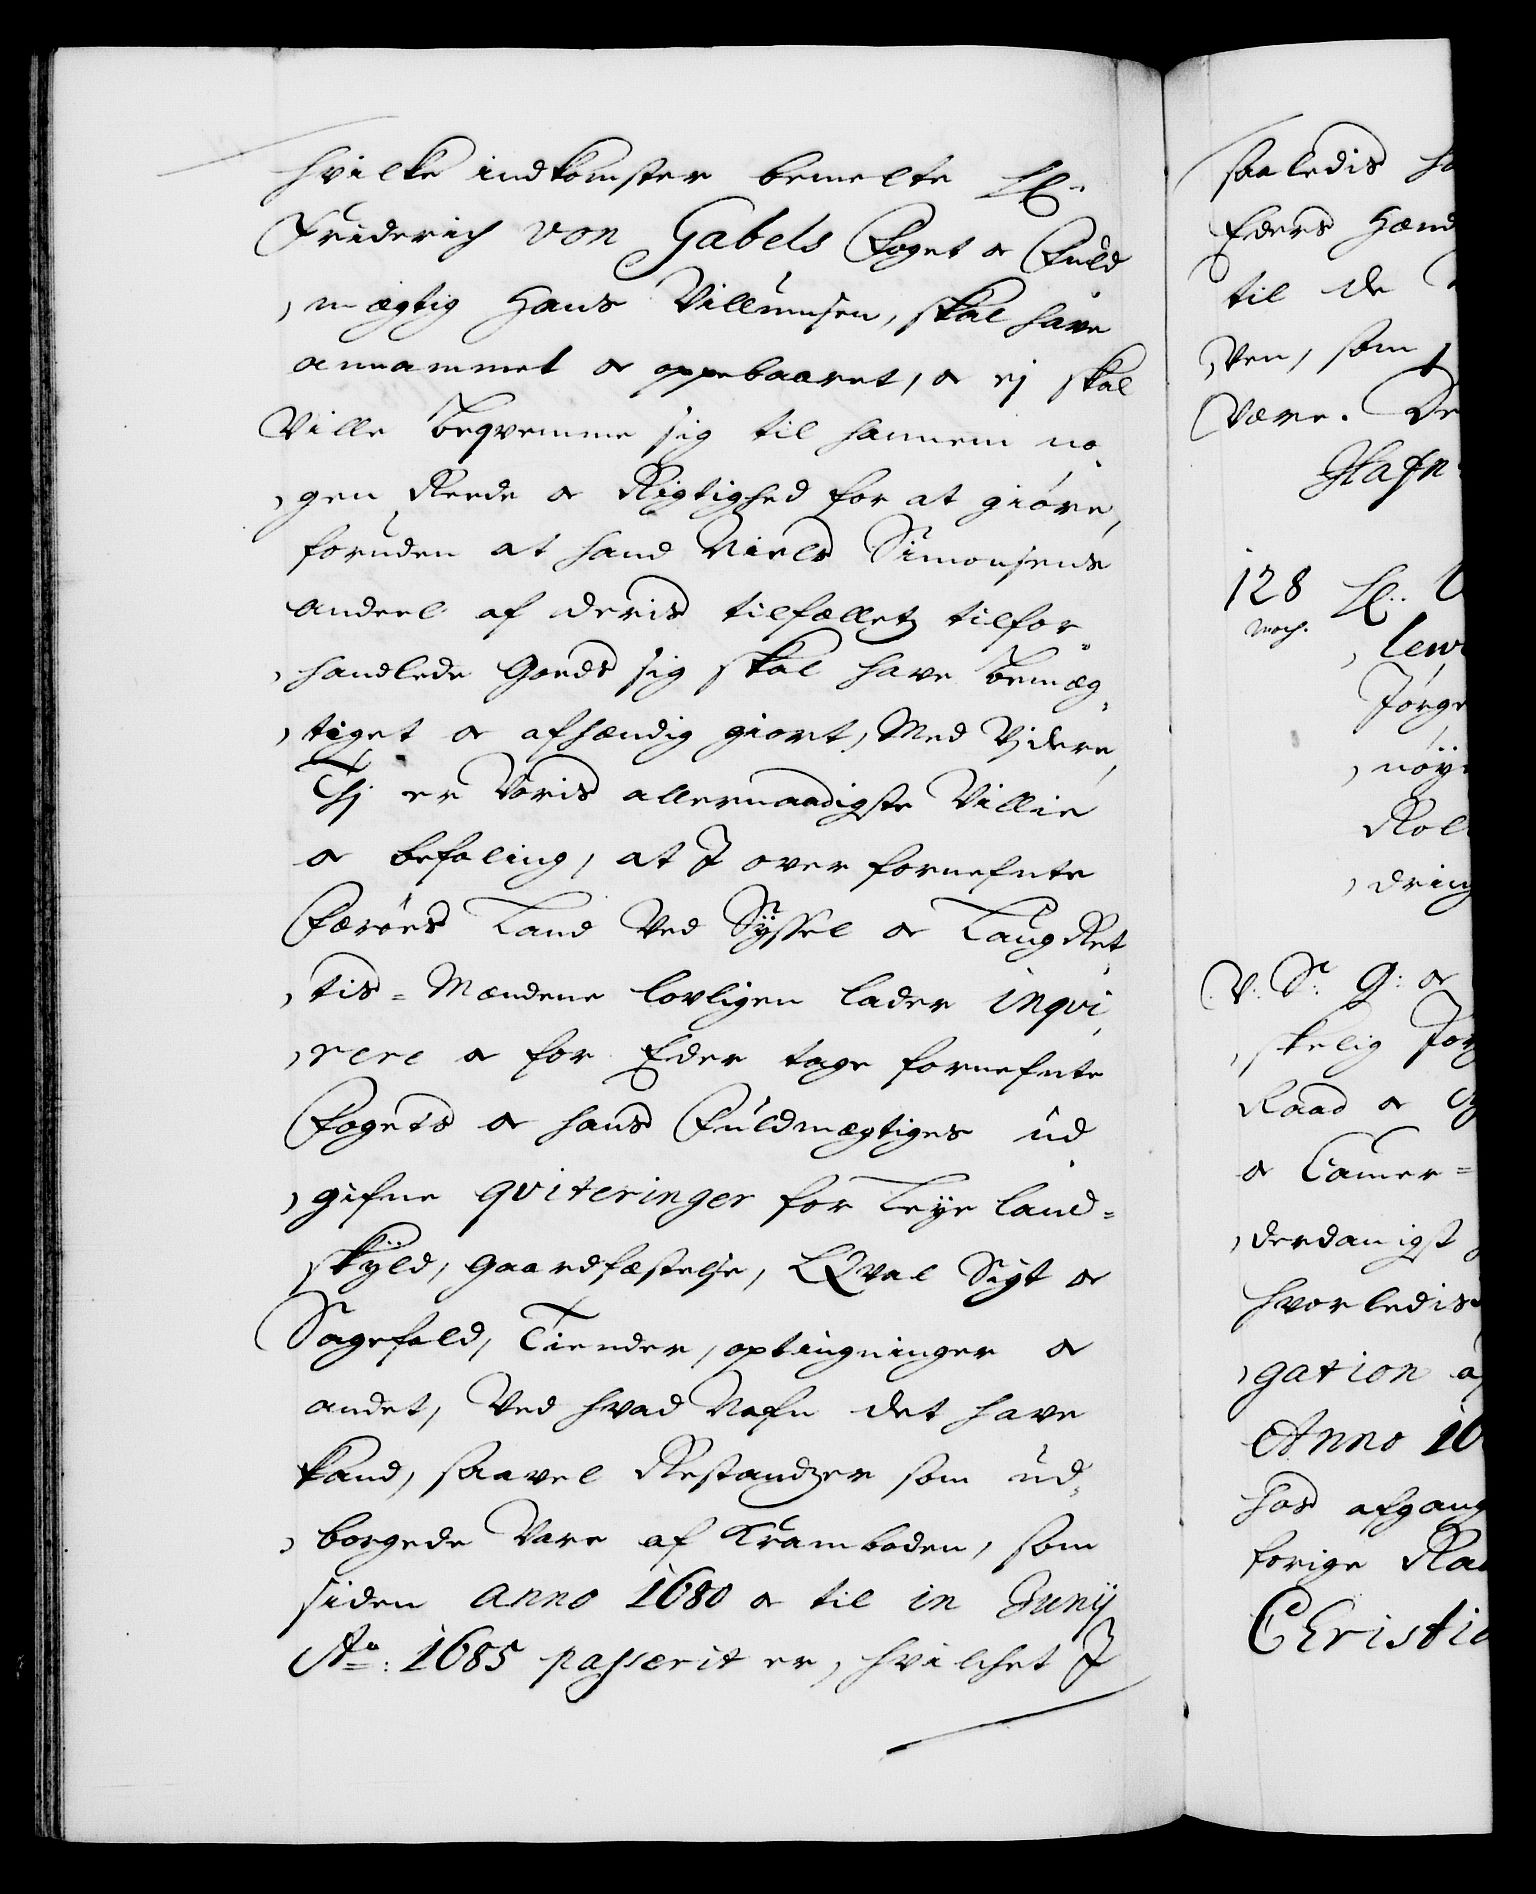 hvilke indkomster bemelte H:
Friderich von Gabels Foget oc Fuld
,mægtig Hans Villumsen, skal have
annammet oc oppebaaret, oc ej skal
Ville beqvemme sig til hannem no,
,gen Reede oc Rigtighed for at giøre,
foruden at hand Niels Simonsens
andeel af deris tilfællets tilfor,
,handlede Goeds sig skal have bemæg,
,tiget oc afhændig giort, Med Videre,
Thj er Voris allernaadigste Villie
oc befaling, at I over fornefnte
Færøes Land Ved Syssel oc Laug Ret
,tis-Mændene lovligen lader inqvi,
,rere oc for Eder tage fornefnte
Fogets oc hans Fuldmægtiges ud,
,gifne qviteringer for Leye land-
skyld, gaardfæstelse, LQval Sigt oc
Sagefald, Tiender, optingninger oc
andet, Ved hvad Nafn det have
kand, saavel Restandzer som ud,
,borgede Vare af Kramboden, som
siden Anno 1680 oc til in Junij
Ao: 1685 passerit er, hvilchet I
saaledis
Eders Hænd
til de
,ven, som
være. De
Hafn
128
noch.
Jørge
,nøye
,dring
V: S. G: oc
,skelig Jørg
Raad oc
oc Camer-
,derdanigst
hvorledis
,gation
Anno 16
hos afgang
forige
Christia